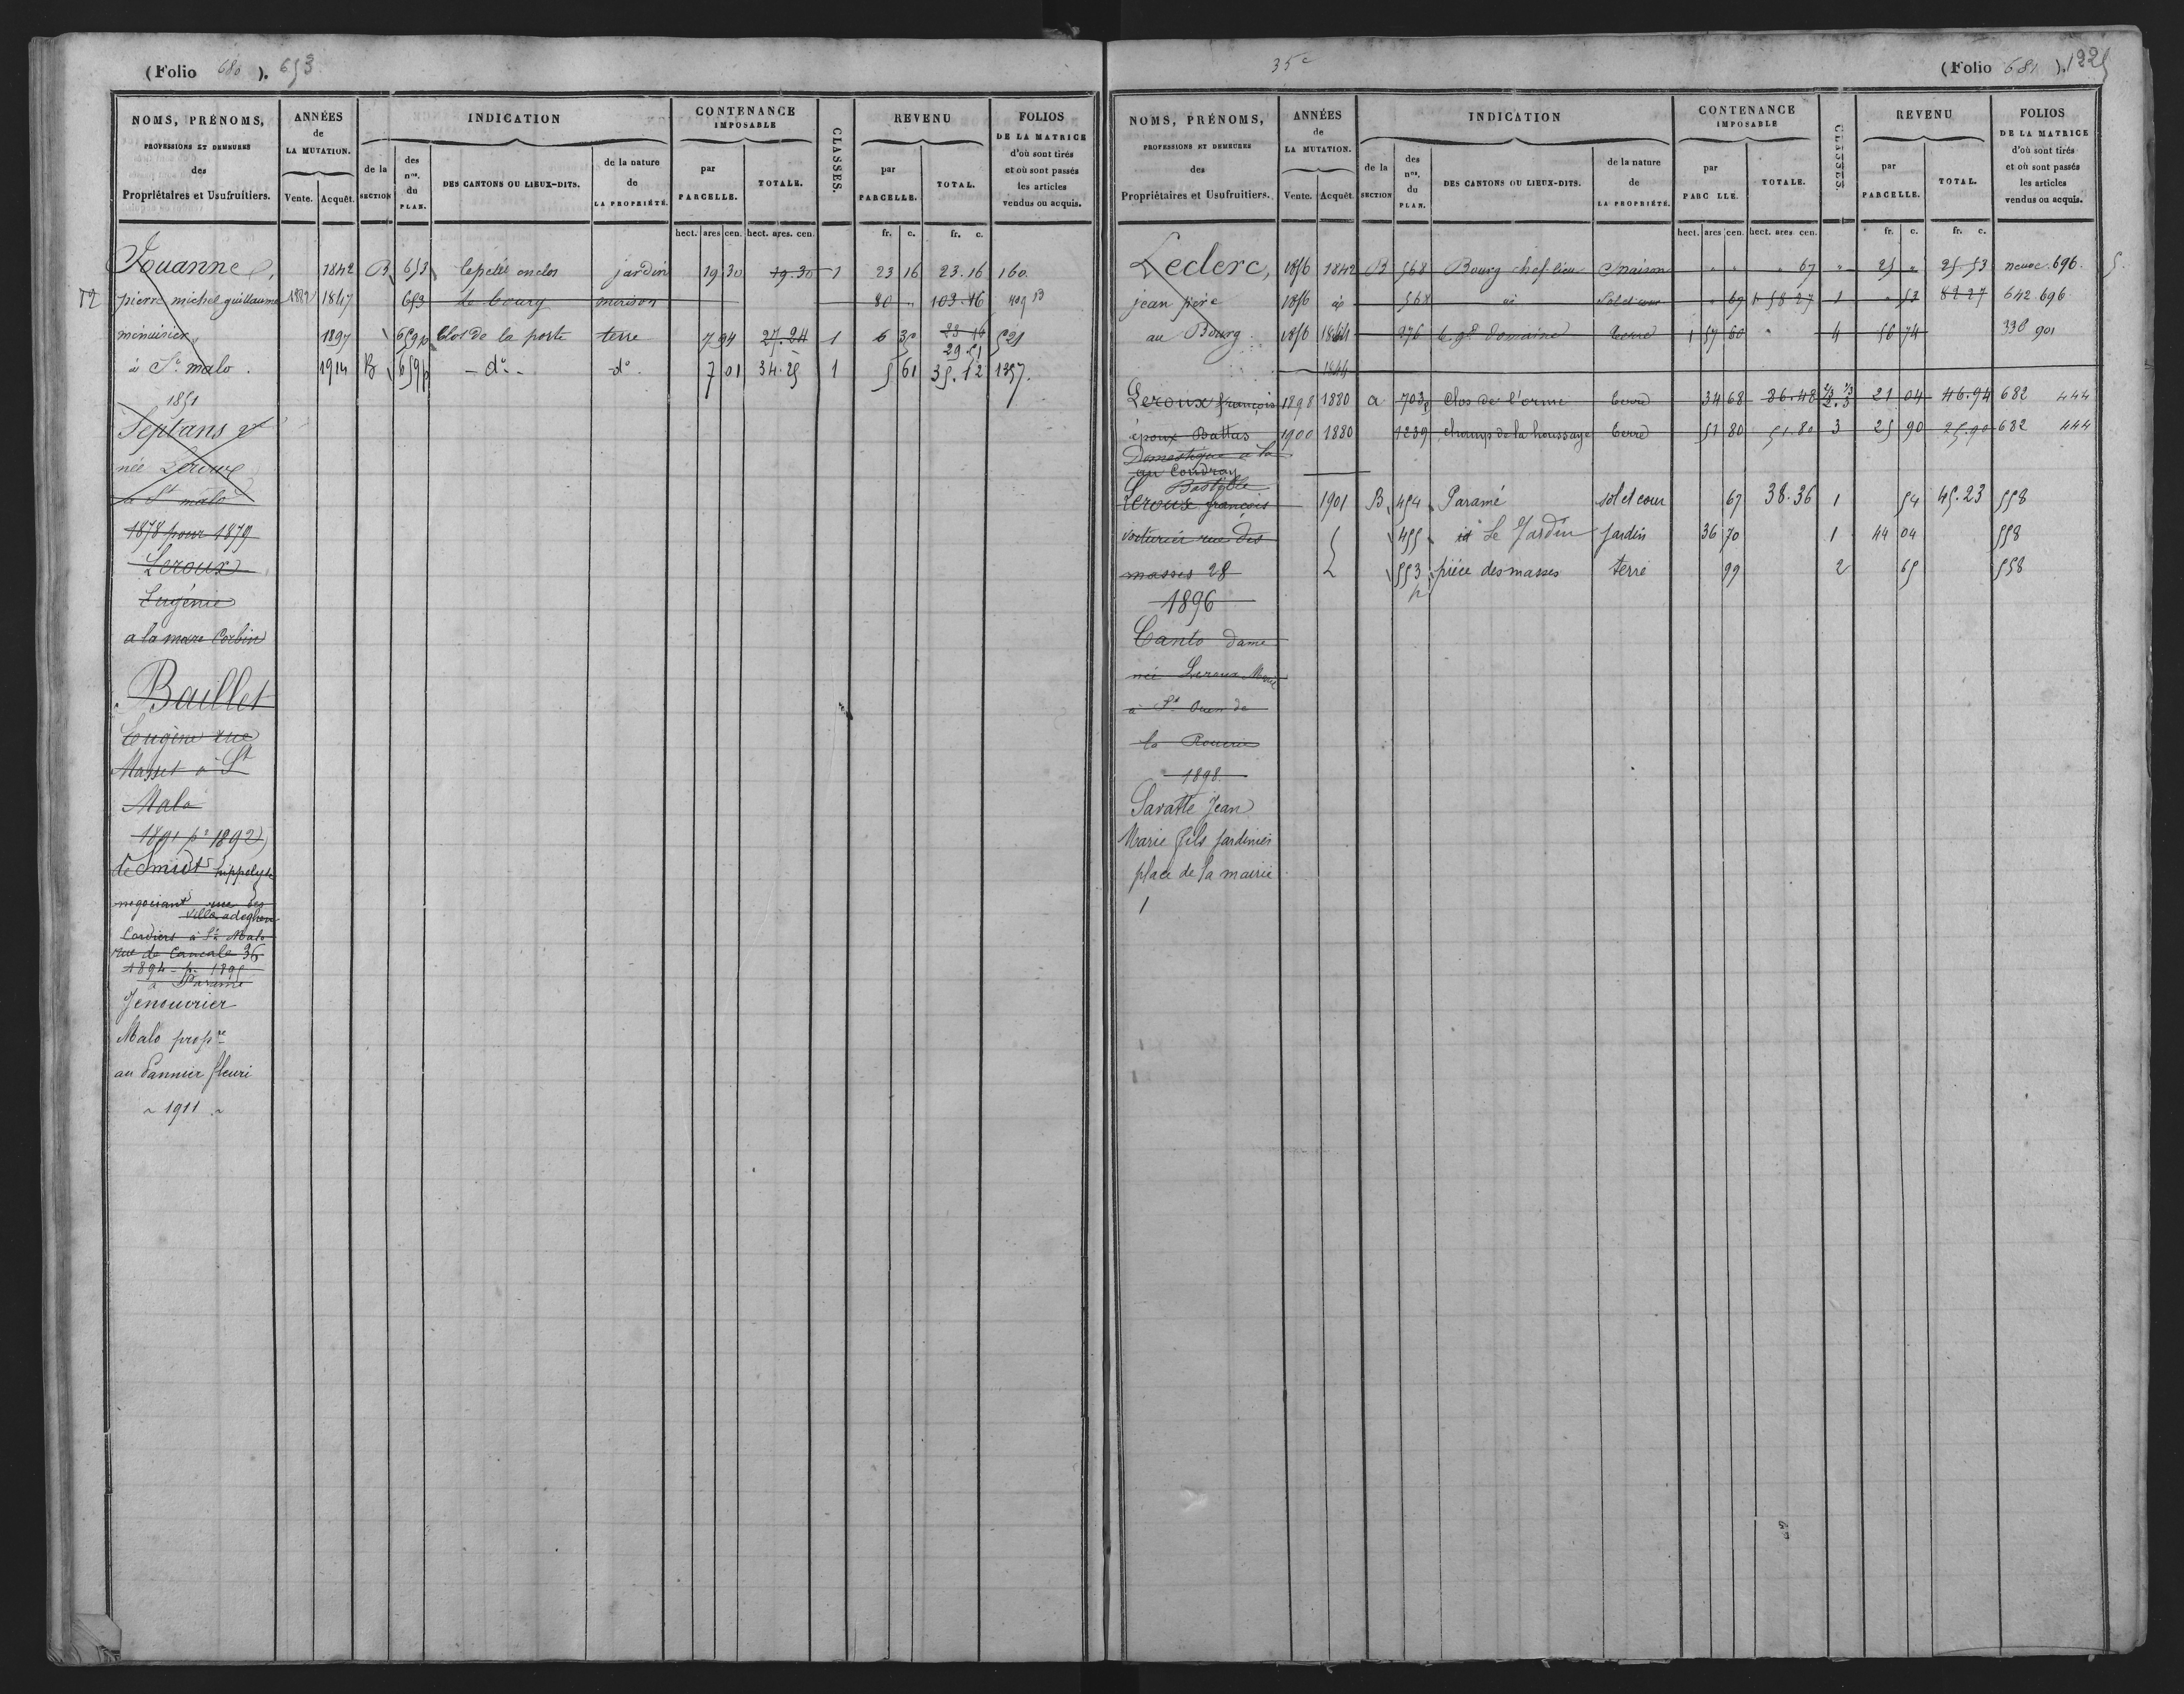 (Folio 680 ). 653
NOMS, PRÉNOMS,
PROFESSIONS ET DEMEURES
des
Propriétaires et Usufruitiers.
ANNÉES
de
LA MUTATION.
Vente. Acquêt.
INDICATION
de la
SECTION
des
nos.
du
PLAN.
DES CANTONS OU LIEUX-DITS.
de la nature
de
LA PROPRIÉTÉ.
CONTENANCE
IMPOSABLE
par
PARCELLE.
TOTALE.
CLASSES.
REVENU
par
PARCELLE.
TOTAL.
FOLIOS
DE LA MATRICE
d'où sont tirés
et où sont passés
les articles
vendus ou acquis.
hect. ares cen. hect. ares. cen. fr. c. fr. c.
Jouanne, 1842 B 653 le petit enclos jardin 19 30 19.30 1 23 16 23.16 160
pierre michel guillaume 1847 653 le bourg maison 80 " 103.16
menuisier 1897 659p Clos de la porte terre 7 94 27.24 1 6 35 521
29.51
à St malo. 1914 B 659p - do - do 7 01 34.25 1 5 61 35.12 1357.
1851
Septans
née Leroux
à St malo
1878 pour 1879
Leroux
Eugénie
a la mare Corbin
Baillet
Eugène rue
Masset à St
Malo
1891 pr 1892
de Smidt hippolyte
negociant rue des
villa
Cordiers à St Malo
rue de Cancale 36
1894 - p. 1895
à Paramé
Jenouvrier
Malo propre
au Pannier fleuri
~ 1911 ~
35e
(Folio 681 ). 1225
NOMS, PRÉNOMS,
PROFESSIONS ET DEMEURES
des
Propriétaires et Usufruitiers.
ANNÉES
de
LA MUTATION.
Vente. Acquêt.
INDICATION
de la
SECTION
des
nos.
du
PLAN.
DES CANTONS OU LIEUX-DITS.
de la nature
de
LA PROPRIÉTÉ.
CONTENANCE
IMPOSABLE
par
PARC LLE.
TOTALE.
CLASSES.
REVENU
par
PARCELLE.
TOTAL.
FOLIOS
DE LA MATRICE
d'où sont tirés
et où sont passés
les articles
vendus ou acquis.
hect. ares cen. hect. ares cen. fr. c. fr. c.
Leclerc, 1856 1842 B 568 Bourg chef lieu Maison " " " 67 " 25 " 25.53 neuve. 696.
jean pierre 1856 id 568 id Sol et cour " 67 1 58 27 1 " 53 82 27 642.696
au Bourg 1856 1844 276 le gd domaine terre 1 57 60 " 4 56 74 338 901
1844
Leroux françois 1898 1880 a 703 Clos de l'orme terre 34 68 86.48 21 04 46.94 682 444
époux Battas 1900 1880 1239 champs de la houssaye terre 51 80 51.80 3 25 90 25.90 682 444
Domestique à la
au Coudray
Leroux françois 1901 B 454 Paramé sol et cour 67 38.36 1 54 45.23 558
voiturier rue des 455 Le Jardin Jardin 36 70 1 44 04 558
masses 28 553 pièce des masses terre 99 2 65 558
p
1896
Canto dame
née Leroux Marie
à St Ouen de
la Rouerie
1898
Savatte Jean
Marie fils Jardinier
place de la mairie